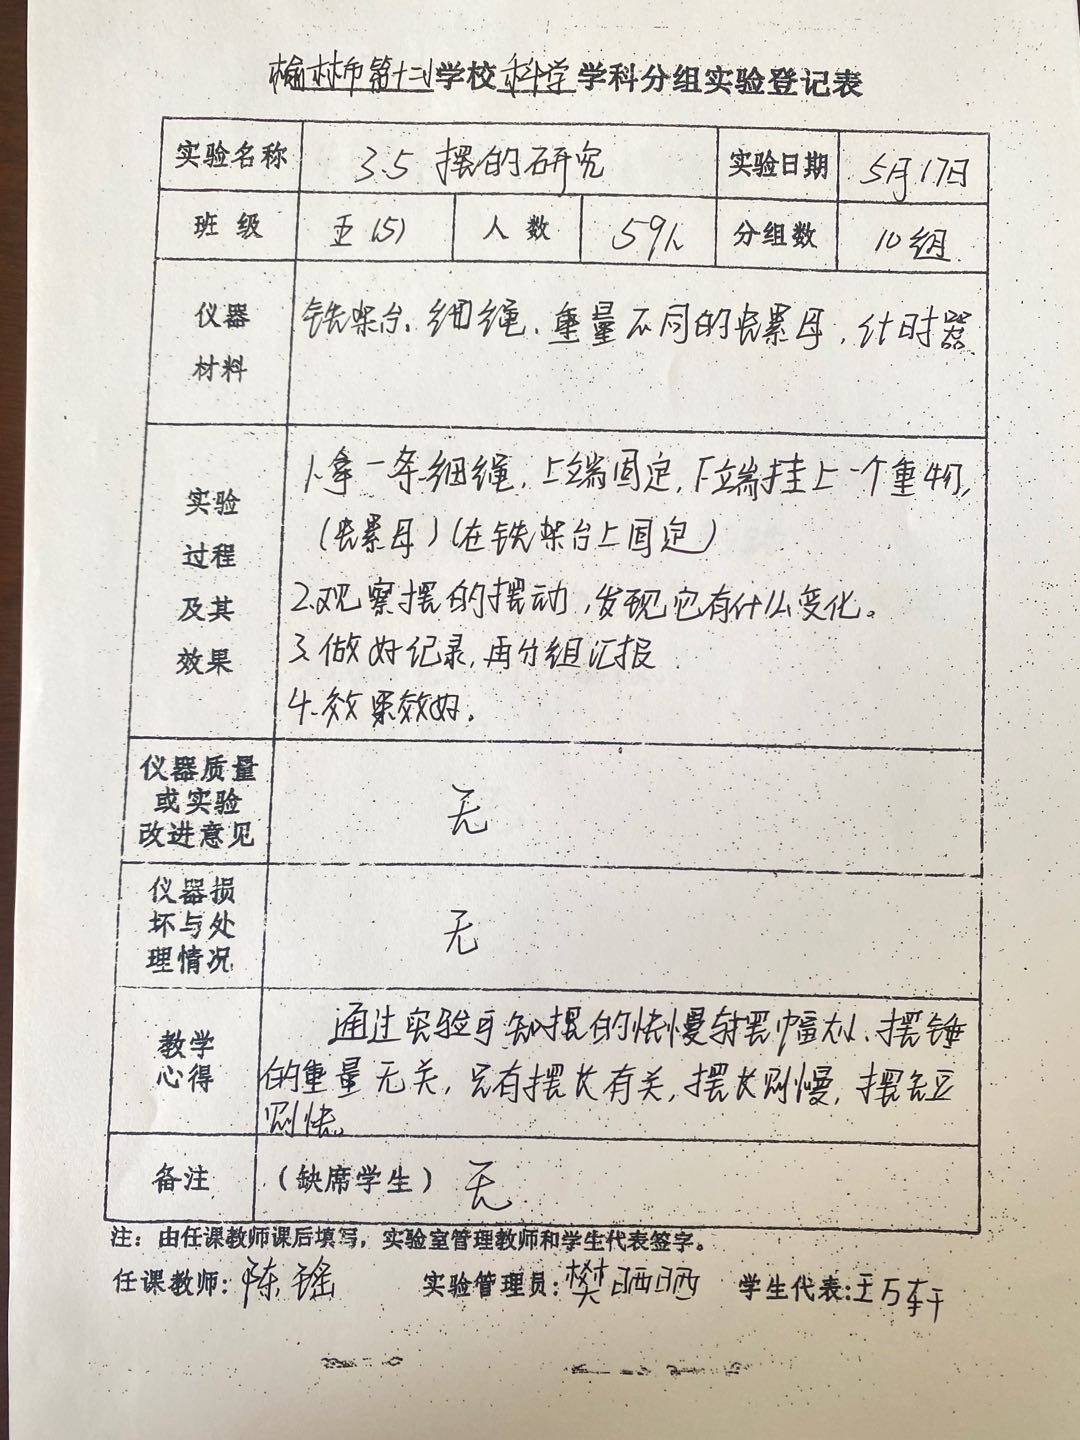 榆林市第十二小学校科学学科分组实验登记表
实验名称 3.5 摆的研究 实验日期 5月17日
班 级 五(5) 人 数 59人 分组数 10组
仪器 铁架台、细绳、重量不同的长累母,计时器
材料
1.拿一条细绳,上端固定,下端挂上一个重物,
实验 (长累母)(在铁架台上固定)
过程 2.观察摆的摆动,发现它有什么变化。
及其 3.做好记录,再分组汇报
效果 4.效果效好。
仪器质量
或实验 无
改进意见
仪器损
坏与处 无
理情况
教学 通过实验可知摆的快慢与摆幅大小、摆锤
心得 的重量无关,只有摆长有关,摆长则慢,摆短
则快。
备注 (缺席学生) 无
注:由任课教师课后填写,实验室管理教师和学生代表签字。
任课教师:陈瑶 实验管理员:樊晒晒 学生代表:王万轩